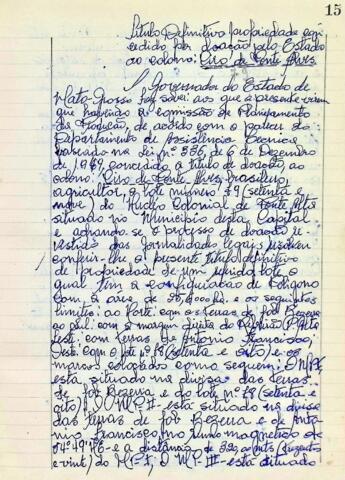 15
Titulo Definitivo propriedade
cedido por doação pelo Estado
ao colono: Ciro de Fonte Alves.
O Governador do Estado de
Mato-Grosso faz saber aos que a presente virem
que havendo a Comissão de Planejamento
da Produção, de acordo com o parecer do
Departamento de Assistência Técnica
baseado na Lei nº 336, de 6 de Dezembro
de 1949, concedido, a titulo de doação, ao
colono: Ciro de Fonte Alves, brasileiro,
agricultor, o lote número 79 (setenta e
nove) do Nucleo Colonial de
situado no Municipio desta Capital
e achando-se o processo de doação re-
vestido das formalidades legais, resolveu
conferir-lhe o presente titulo definitivo
de propriedade de um referido lote o
qual tem a configuração de Poligono
com a area de e os seguintes
limites: ao Norte, com as terras de José Bezerra
ao sul: com a margem direita do Ribeirão
com terras de Antonio Francisco;
Oeste: com o lote nº 78 (setenta e oito), e os
marcos colocados como seguem: O MP I
está situado na divisa das terras
de José Bezerra e do lote nº 78 (setenta e
oito). O M.P. II - está situado na divisa
das terras de José Bezerra e de Antô-
nio Francisco, no rumo magnetico de
e a distância de 320,00 mts (trezentos
e vinte) do M.P. I, O M.P. III - está situado